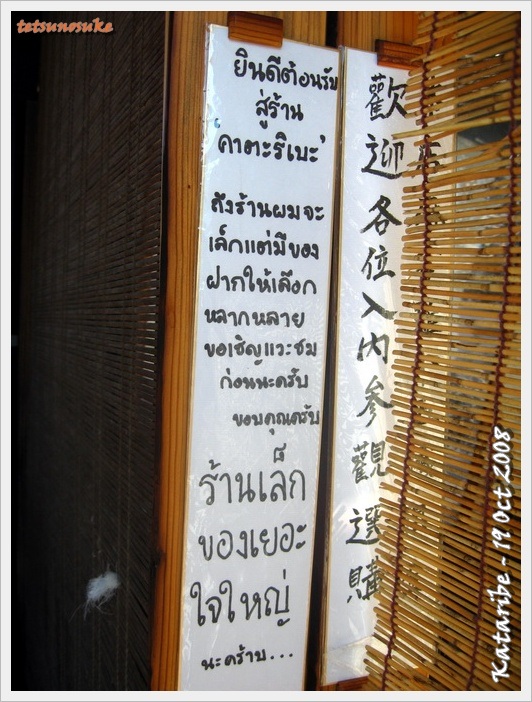 tetsunosuke
ยินดีต้อนรับ
สู่ร้าน
'คาตะริเบะ'
ถึงร้านผมจะ
เล็กแต่มีของ
ฝากให้เลือก
หลากหลาย
ขอเชิญแวะชม
ก่อนนะครับ
ขอบคุณครับ
ร้านเล็ก
ของเยอะ
ใจใหญ่
นะคร้าบ...
歡迎各位入內參觀選購
Kataribe - 19 Oct 2008